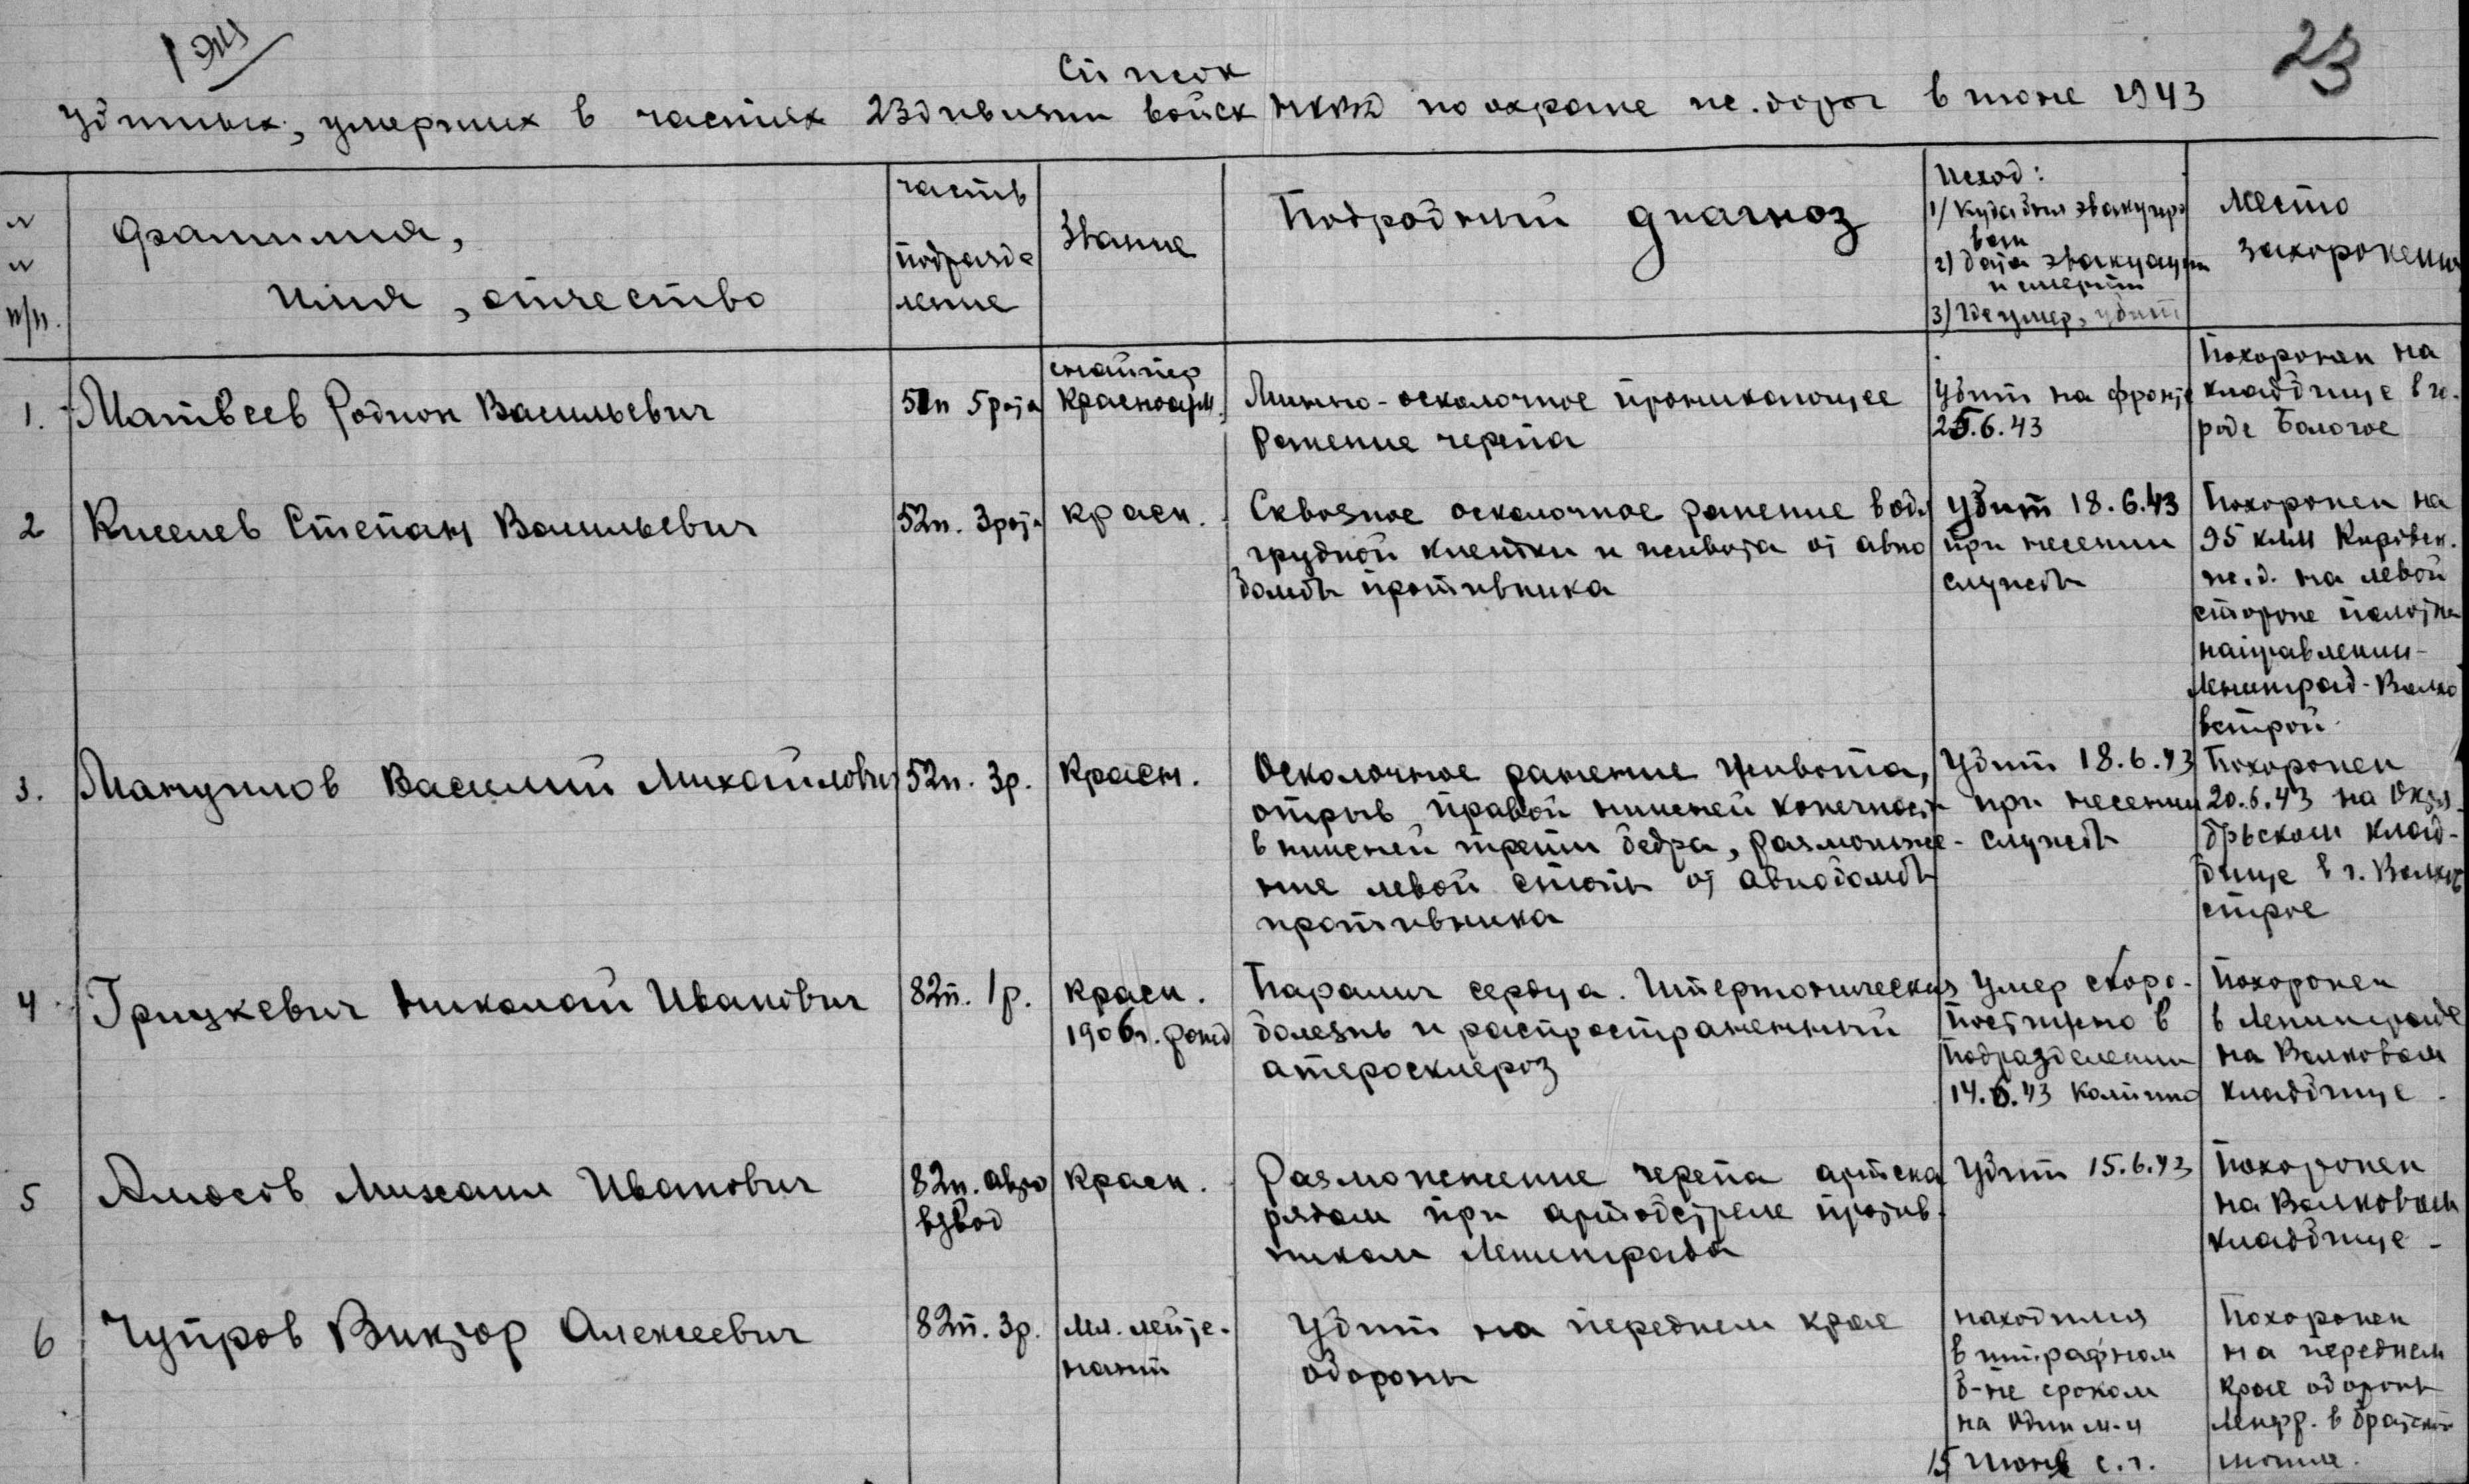 1 экз
23
Список
убитых, умерших в частях 23 дивизии войск НКВД по охране ж.дорог в июне 1943
№
№
п/п.
Фамилия,
имя, отчество
часть
подразде
ление
Звание
Подробный диагноз
Исход:
1/ Куда был эвакуиро
ван
2) дата эвакуации
и смерти
3) Где умер, убит
Место
захоронения
1. Матвеев Родион Васильевич
51п 5рота
снайпер
Красноарм.
Минно-осколочное проникающее
ранение черепа
Убит на фронте
25.6.43
Похоронен на
кладбище в го-
роде Бологое
2 Киселев Степан Васильевич
52п. 3рота
Красн.
Сквозное осколочное ранение в обл.
грудной клетки и живота от авио
бомбы противника
Убит 18.6.43
при несении
службы
Похоронен на
95 клм Кировск.
ж.д. на левой
стороне полотна
направлении-
Ленинград-Волхо
встрой.
3. Манушков Василий Михайлович
52п. 3р.
Красн.
Осколочное ранение живота,
отрыв правой нижней конечности
в нижней трети бедра, размозже-
ние левой стопы от авиобомбы
противника
Убит 18.6.43
при несении
службы
Похоронен
20.6.43 на Октя
брьском клад-
бище в г. Волхов
строе
4. Грицкевич Николай Иванович
82п. 1р.
Красн.
1906г. рожд
Паралич сердца. Гипертоническая
болезнь и распространенный
атеросклероз
Умер скоро-
постижно в
подразделении
14.6.43 Колпино
Похоронен
в Ленинграде
на Волковом
кладбище.
5 Амосов Михаил Иванович
82п. авто
взвод
Красн.
Размозжение черепа артсна
рядом при артобстреле против
ником Ленинграда
Убит 15.6.43
Похоронен
на Волковом
кладбище-
6 Чупров Виктор Алексеевич
82п. 3р.
Мл. лейте-
нант
Убит на переднем крае
обороны
находился
в штрафном
б-не сроком
на один м-ц
15 июня с.г.
Похоронен
на переднем
крае обороны
Ленфр. в братской
могиле.